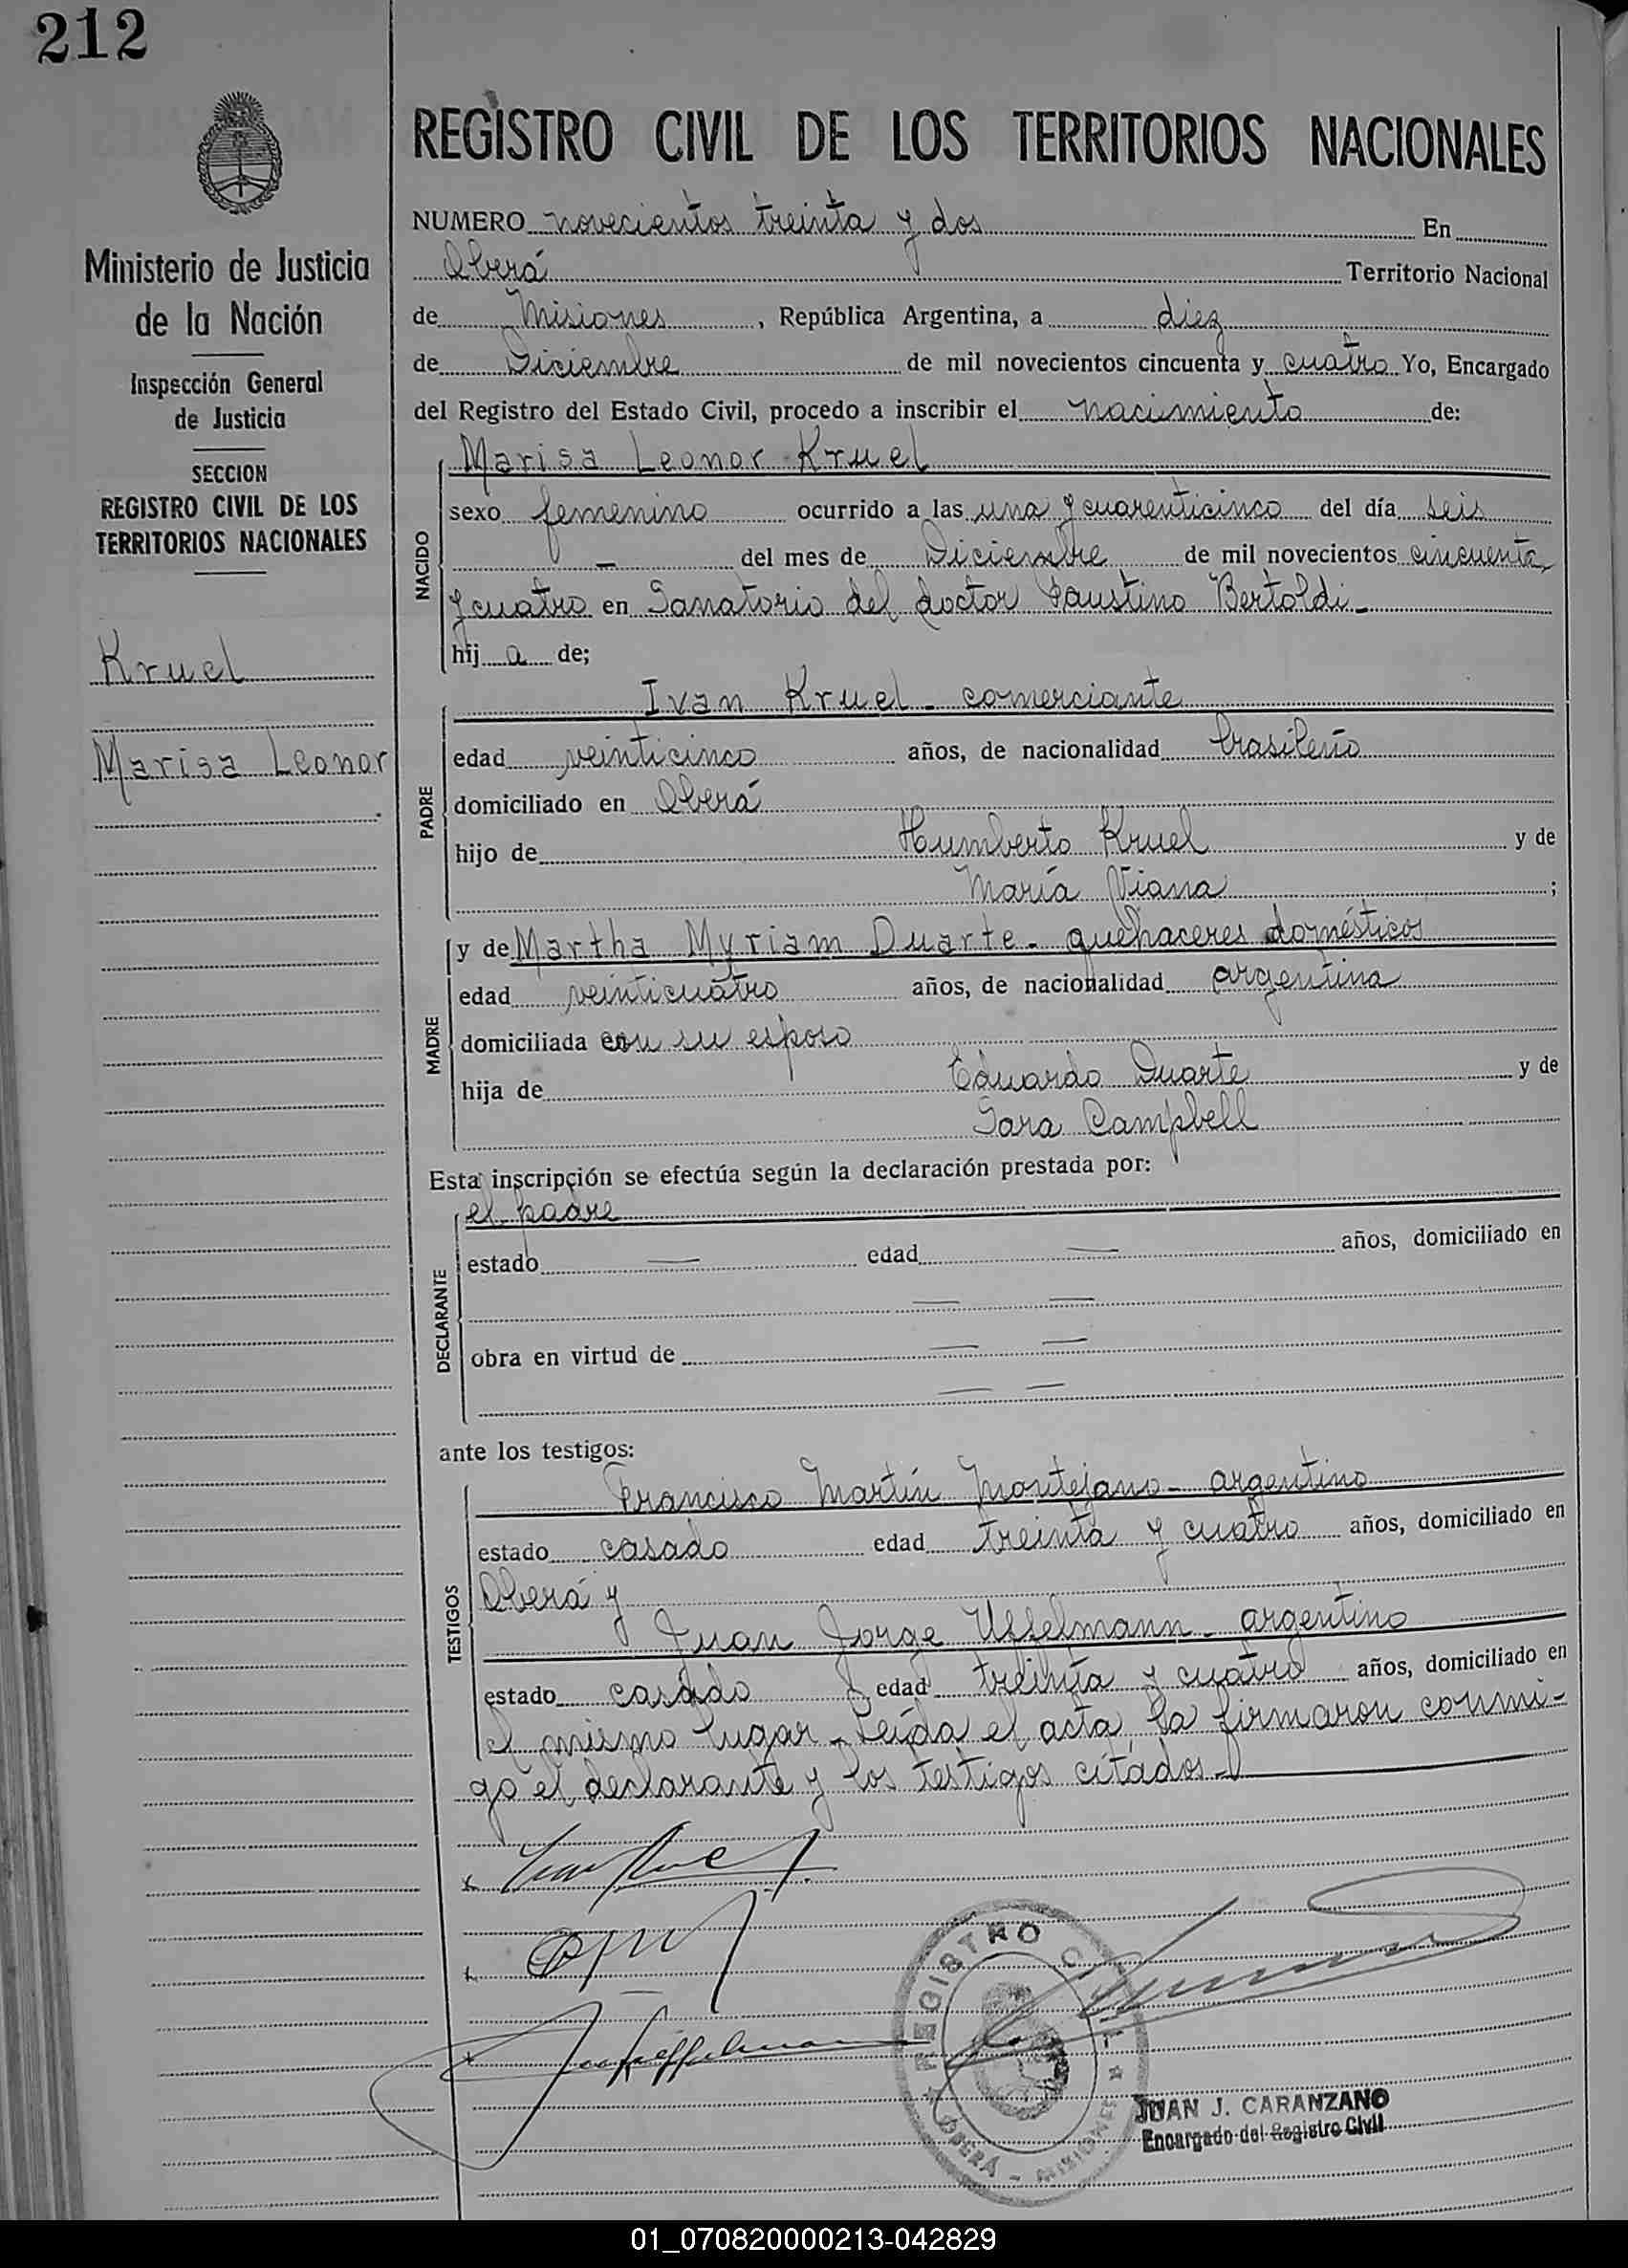 212
Ministerio de Justicia
de la Nación
Inspección General
de Justicia
SECCION
REGISTRO CIVIL DE LOS
TERRITORIOS NACIONALES
Kruel
Marisa Leonor
REGISTRO CIVIL DE LOS TERRITORIOS NACIONALES
NUMERO novecientos treinta y dos En
Oberá Territorio Nacional
de Misiones, República Argentina, a diez
de Diciembre de mil novecientos cincuenta y cuatro Yo, Encargado
del Registro del Estado Civil, procedo a inscribir el nacimiento de:
NACIDO
Marisa Leonor Kruel
sexo femenino ocurrido a las una y cuarenticinco del día seis
— del mes de Diciembre de mil novecientos cincuenta
y cuatro en Sanatorio del doctor Faustino Bertoldi.-
hij a de;
PADRE
Ivan Kruel - comerciante
edad veinticinco años, de nacionalidad brasileño
domiciliado en Oberá
hijo de Humberto Kruel y de
María Viana ;
MADRE
y de Martha Myriam Duarte - quehaceres domésticos
edad veinticuatro años, de nacionalidad argentina
domiciliada con su esposo
hija de Eduardo Duarte y de
Sara Campbell
Esta inscripción se efectúa según la declaración prestada por:
DECLARANTE
el padre
estado — edad — años, domiciliado en
— —
obra en virtud de — —
— —
ante los testigos:
TESTIGOS
Francisco Martín Montejano - argentino
estado casado edad treinta y cuatro años, domiciliado en
Oberá y
Juan Jorge Uffelmann - argentino
estado casado edad treinta y cuatro años, domiciliado en
el mismo lugar - Leída el acta, la firmaron conmi-
go el declarante y los testigos citados -
REGISTRO CIVIL
OBERÁ - MISIONES
JUAN J. CARANZANO
Encargado del Registro Civil
01_070820000213-042829